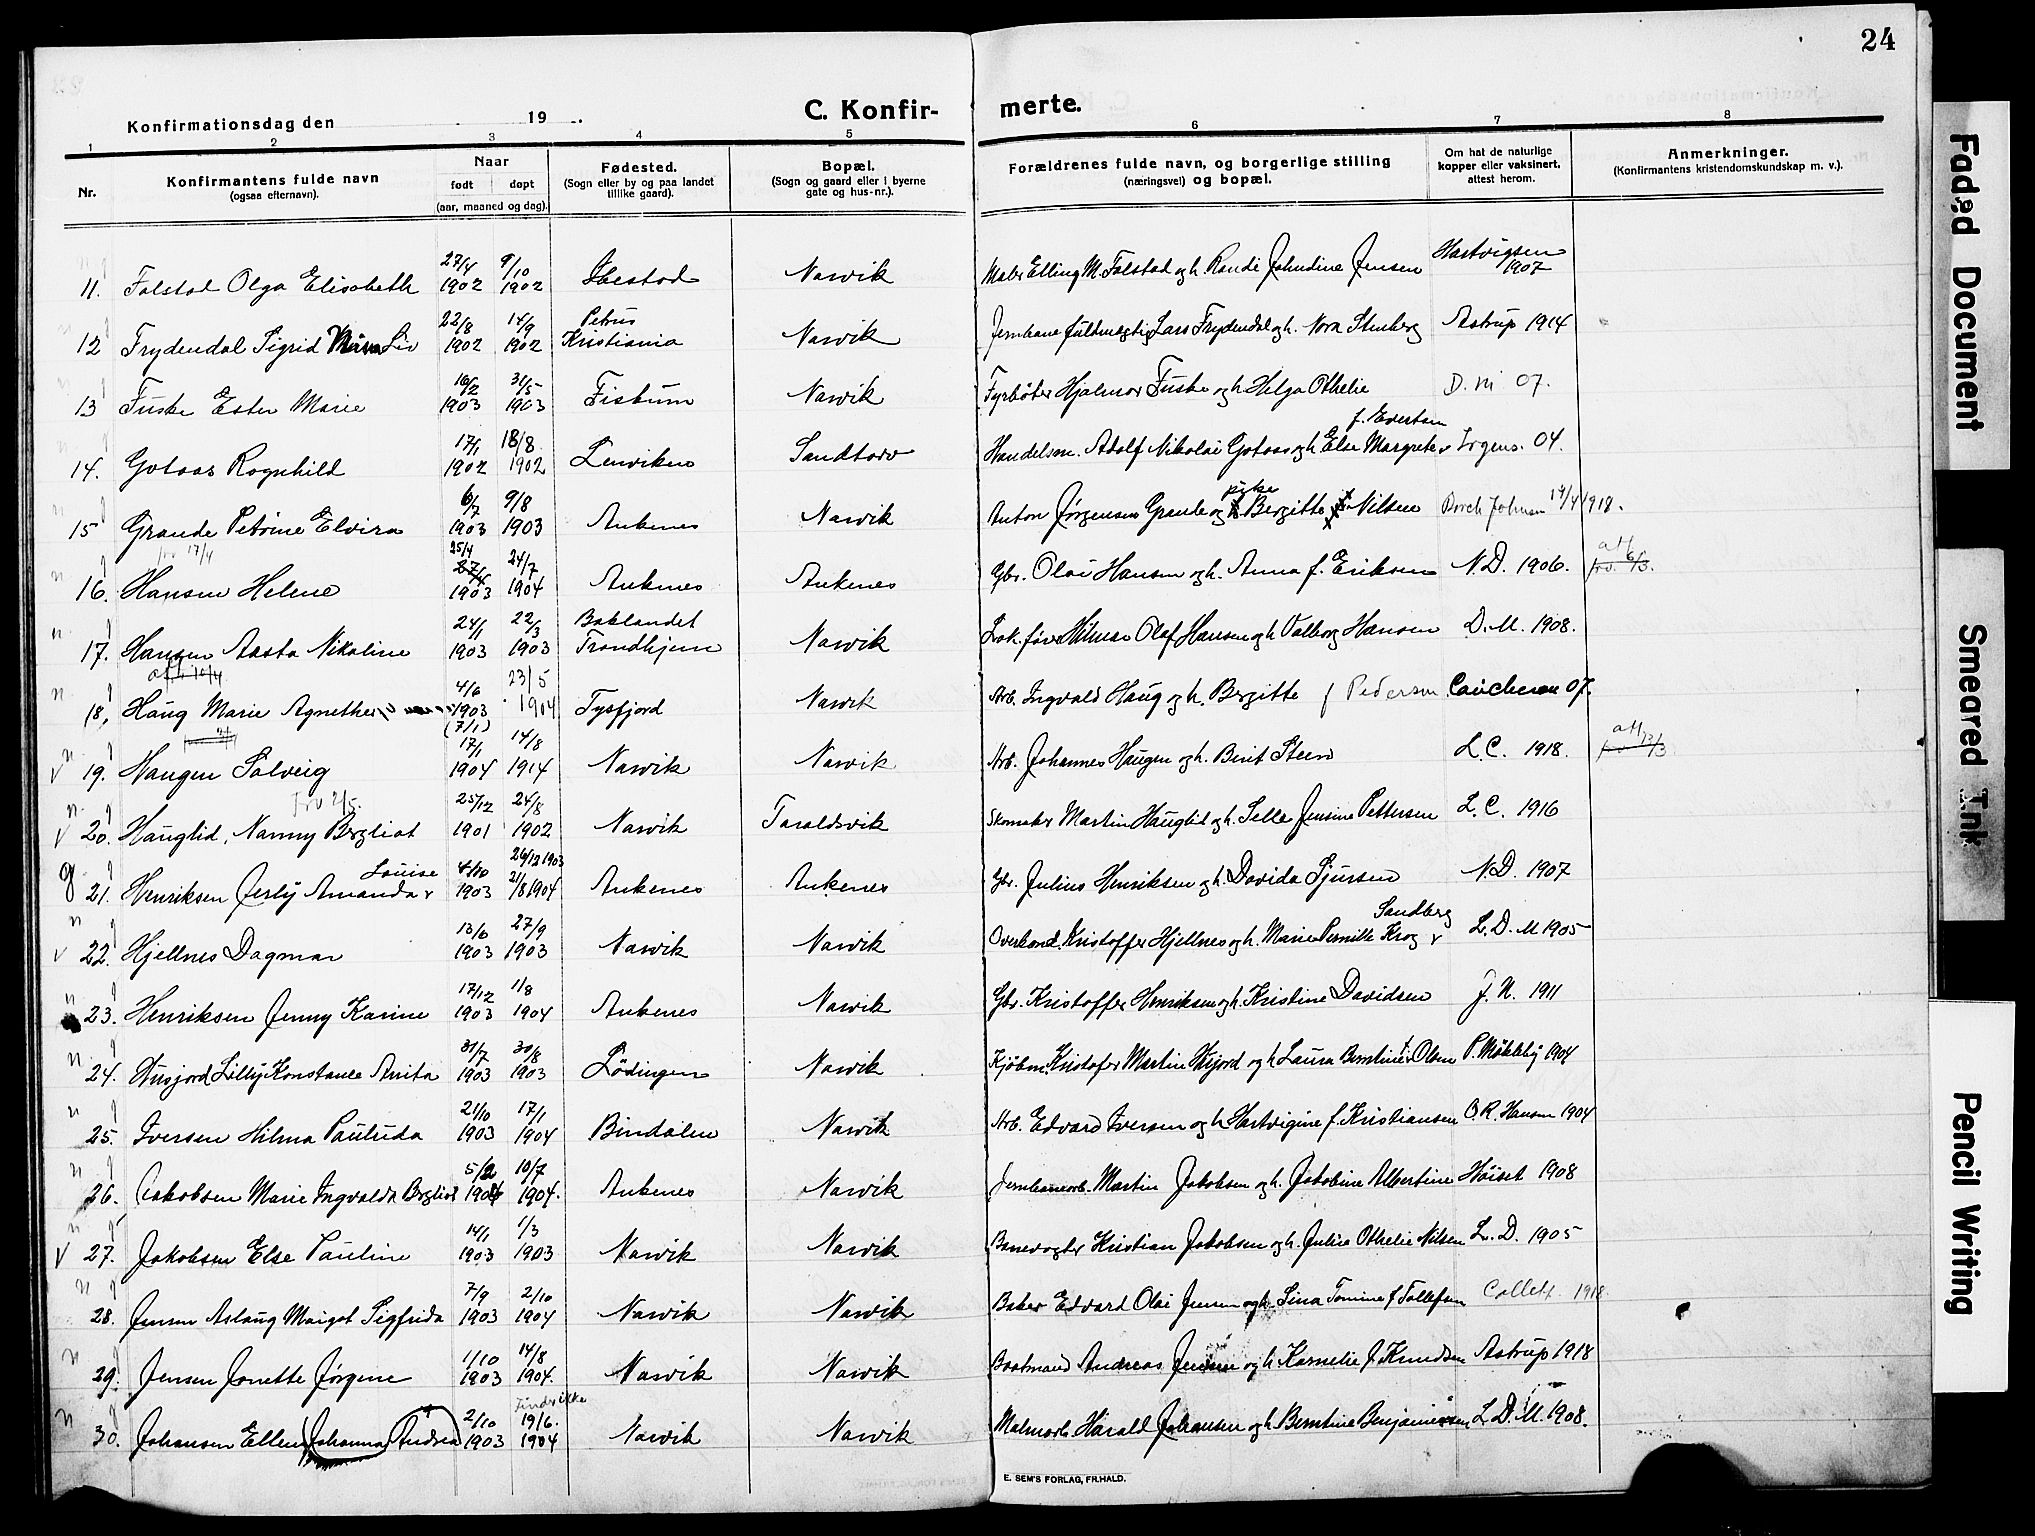 24
C. Konfirmerte.
Konfirmationsdag den 19
1 2 3 4 5 6 7 8
Nr. Konfirmantens fulde navn (ogsaa efternavn). Naar født døpt (aar, maaned og dag). Fødested. (Sogn eller by og paa landet tillike gaard). Bopæl. (Sogn og gaard eller i byerne gate og hus-nr.). Forældrenes fulde navn, og borgerlige stilling (næringsvei) og bopæl. Om hat de naturlige kopper eller vaksinert, attest herom. Anmerkninger. (Konfirmantens kristendomskundskap m. v.).
11. Falstad Olga Elisabeth 27/4 1902 9/10 1902 Ibestad Narvik Maler Elling M. Falstad og h. Randi Johndine Jensen Hartvigsen 1907
12 Frydendal Sigrid Liv 22/8 1902 14/9 1902 Petrus Kristiania Narvik Jernbanefuldmægtig Lars Frydendal og h. Nora Stenberg Astrup 1914
13 Fuske Ester Marie 16/2 1903 31/5 1903 Fiskum Narvik Fyrbøter Hjalmar Fuske og h. Helga Othelie D. M 07.
14. Gotaas Ragnhild 17/1 1902 18/8 1902 Lenviken Sandtorv Handelsm. Adolf Nikolai Gotaas og h. Else Margrete f. Evertsen Irgens. 04.
15 Grande Petrine Elvira 6/7 1903 9/8 1903 Ankenes Narvik Anton Jørgensen Grande og pike Bergitte Nilsen Borch Johnsen 14/4 1918.
16. Hansen Helene 25/4 27/4 1903 24/7 1904 Ankenes Ankenes Gbr. Olai Hansen og h. Anna f. Eriksen N. D. 1906. att
17. Hansen Aasta Nikoline 24/1 1903 22/3 1903 Baklandet Trondhjem Narvik Lok.fører Hilmar Olaf Hansen og h. Valborg Hansen D. M. 1908.
18. Haug Marie Agnethe 4/6 1903 23/5 1904 Tysfjord Narvik Arb. Ingvald Haug og h. Bergitte f Pedersen Caucheron 07.
19. Haugen Solveig (7/1) 17/1 1904 14/8 1914 Narvik Narvik Arb. Johannes Haugen og h. Berit Steen L. C. 1918. att 13/3
20. Hauglid, Nanny Bergliot 25/12 1901 24/8 1902 Narvik Taraldsvik Skomaker Martin Hauglid og h. Selle Jensine Pettersen L. C. 1916
21. Henriksen Jerly Amanda Louise 4/10 1903 26/12 1903 21/8 1904 Ankenes Ankenes Gbr. Julius Henriksen og h. Davida Sjursen N. D. 1907
22. Hjellnes Dagmar 13/6 1903 27/9 1903 Narvik Narvik Overkond. Kristoffer Hjellnes og h. Marie Pernille Krog Sandberg L. D. M 1905
23. Henriksen Jenny Karine 17/12 1903 1/8 1904 Ankenes Narvik Gbr. Kristoffer Henriksen og h. Kristine Davidsen J. N. 1911
24. Husjord Lilly Konstanse Anita 31/7 1903 30/8 1903 Lødingen Narvik Kjøbm. Kristofer Martin Husjord og h. Laura Berntine Olsen P. Møkleby 1904
25. Iversen Hilma Paulida 21/10 1903 17/1 1904 Bindalen Narvik Arb. Edvard Iversen og h. Hartvigine f. Kristiansen O. R. Hansen 1904
26. Jakobsen Marie Ingvalda Bergliot 5/2 1904 10/7 1904. Ankenes Narvik Jernbanearb. Martin Jakobsen og h. Jakobine Albertine Høiset 1908
27. Jakobsen Else Pauline 14/1 1903 1/3 1903 Narvik Narvik Banevogter Kristian Jakobsen og h. Julie Othelie Nilsen L. D. 1905
28. Jensen Aslaug Margot Sigfrida 7/9 1903 2/10 1904 Narvik Narvik Baker Edvard Olai Jensen og h. Sina Tomine f Tollefsen Collett 1918
29. Jensen Jonette Jørgine 1/10 1903 14/8 1904. Narvik Narvik Baatmand Andreas Jensen og h. Kornelie f. Knudsen Astrup 1918
30. Johansen Ellen (Johanna) Andrea 2/10 1903 19/6. 1904 Narvik Narvik Malmarb. Harald Johansen og h. Berntine Benjaminsen L. D. M. 1908.
E. SEM'S FORLAG, FR.HALD.
Faded Document
Smeared Ink
Pencil Writing